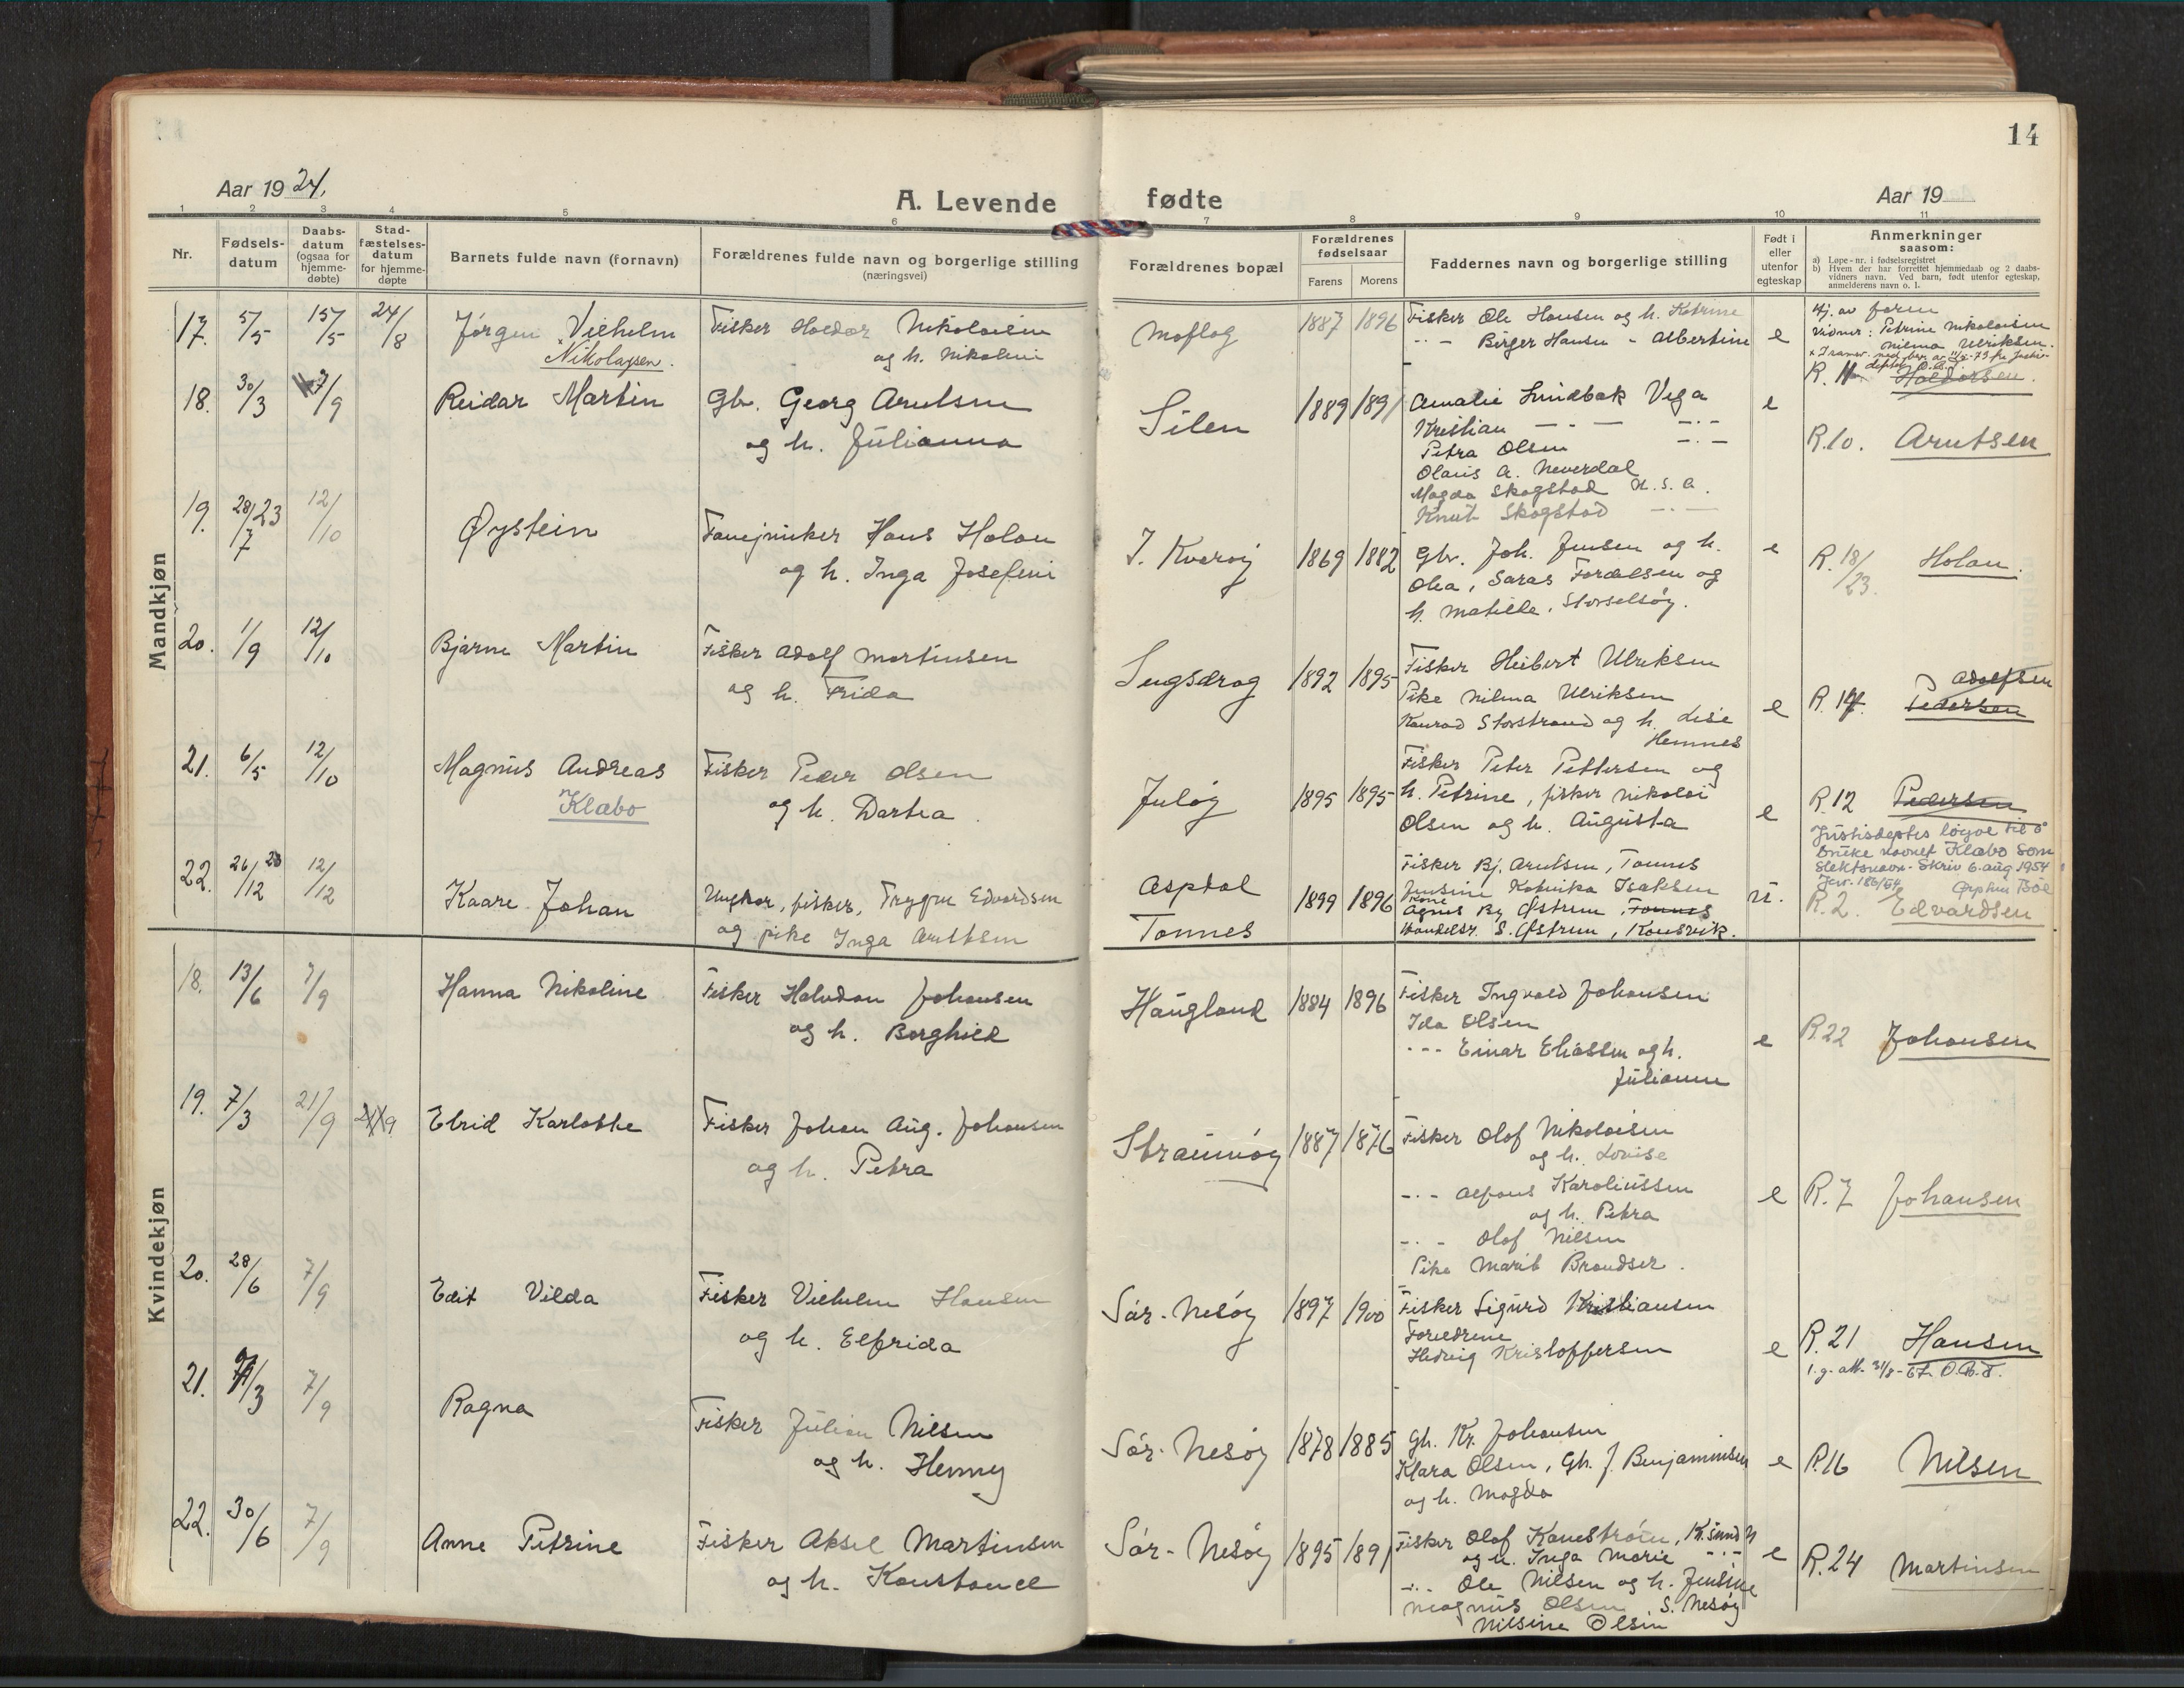 14
Aar 1924.
A. Levende fødte
Aar 19
1 2 3 4 5 6 7 8 9 10 11
Nr.
Fødsels-
datum
Daabs-
datum
(ogsaa for
hjemme-
døbte)
Stad-
fæstelses-
datum
for hjemme-
døpte
Barnets fulde navn (fornavn)
Forældrenes fulde navn og borgerlige stilling
(næringsvei)
Forældrenes bopæl
Forældrenes
fødselsaar
Farens Morens
Faddernes navn og borgerlige stilling
Født i
eller
utenfor
egteskap
Anmerkninger
saasom:
a) Løpe-nr. i fødselsregistret
b) Hvem der har forrettet hjemmedaab og 2 daabs-
vidners navn. Ved barn, født utenfor egteskap,
anmelderens navn o. l.
Mandkjøn
17. 5/5 15/5 24/8 Jørgen Vilhelm
Nikolaysen.
Fisker Haldor Nikolaisen
og h. Nikoline
Moflag 1887 1896
Fisker Ole Hansen og h. Katrine
-"- Birger Hansen - Albertine
e
Hj. av faren
Vidner: Petrine Nikolaisen
Nilma Ulriksen.
R. 11 Haldorsen.
18. 30/3 7/9 Reidar Martin
Gbr. Georg Arntsen
og h. Julianna
Silen 1889 1891
Amalie Lundbak Vega
Kristian -"- -"-
Petra Olsen -"-
Olaus A. Neverdal
Magda Skogstad U.S.A.
Knut Skogstad -"-
e
R.10. Arntsen
19. 28/7 23 12/10 Øystein
Hans Holan
og h. Inga Josefine
I. Kvarøy 1869 1882
Gbr. Joh. Jensen og h.
Olea, Saras Tordalsen og
h. Matille, Storselsøy.
e
R. 18/23. Holan.
20. 1/9 12/10 Bjarne Martin
Fisker Adolf Martinsen
og h. Frida
Lugsdrag 1892 1895
Fisker Heibert Ulriksen
Pike Nilma Ulriksen
Konrad Storstrand og h. Lise
Hemnes
e
R. 14. Adolfsen
Pedersen
21. 6/5 12/10 Magnus Andreas
Klæbo
Fisker Peder Olsen
og h. Dortea
Juløy 1895 1895
Fisker Peter Pettersen og
h. Petrine, fisker Nikolai
Olsen og h. Augusta
e
R.12 Pedersen
Justisdeptes løyve til å
bruke navnet Klæbo som
slektsnavn. Skriv 6. aug 1954
Jnr. 186/54
22. 26/12 23 12/12 Kaare Johan
Ungkar, fisker, Trygve Edvardsen
og pike Inga Arntsen
Aspdal
Tonnes
1899 1896
Fisker Bj. Arntsen, Tonnes
Jensine Katinka Isaksen
Agnes By Østrem, Tonnes
Handelsr. S. Østrem, Konsvik.
u.
R. 2. Edvardsen
Kvindekjøn
18. 13/6 7/9 Hanna Nikoline
Fisker Halvdan Johansen
og h. Borghild
Haugland 1884 1896
Fisker Ingvald Johansen
Ida Olsen
-"- Einar Eliassen og h.
Julianne
e
R.22 Johansen
19. 7/3 21/9 21/9 Elrid Karlotte
Fisker Johan Aug. Johansen
og h. Petra
Straumøy 1887 1876
Fisker Olof Nikolaisen
og h. Lovise
-"- Alfons Karoliussen
og h. Petra
-"- Olof Nilsen
Pike Marit Brandser.
e
R. 7 Johansen
20. 28/6 7/9 Edit Vilda
Fisker Vilhelm Hansen
og h. Elfrida
Sør-Nesøy 1897 1900
Fisker Sigurd Kristiansen
Foreldrene
Hedvig Kristoffersen
e
R. 21 Hansen
21. 7/3 7/9 Ragna
Fisker Julian Nilsen
og h. Henny
Sør-Nesøy 1878 1885
Gh. Kr. Johansen
Klara Olsen, Gh. J. Benjaminsen
og h. Magda
e
R.16 Nilsen
22. 30/6 7/9 Anne Petrine
Fisker Aksel Martinsen
og h. Konstance
Sør-Nesøy 1895 1891
Fisker Olof Kanestrøm, Kr.sund N
og h. Inga Marie -"-
-"- Ole Nilsen og h. Jensine
Magnus Olsen S. Nesøy
Nilsine Olsen
e
R.24 Martinsen